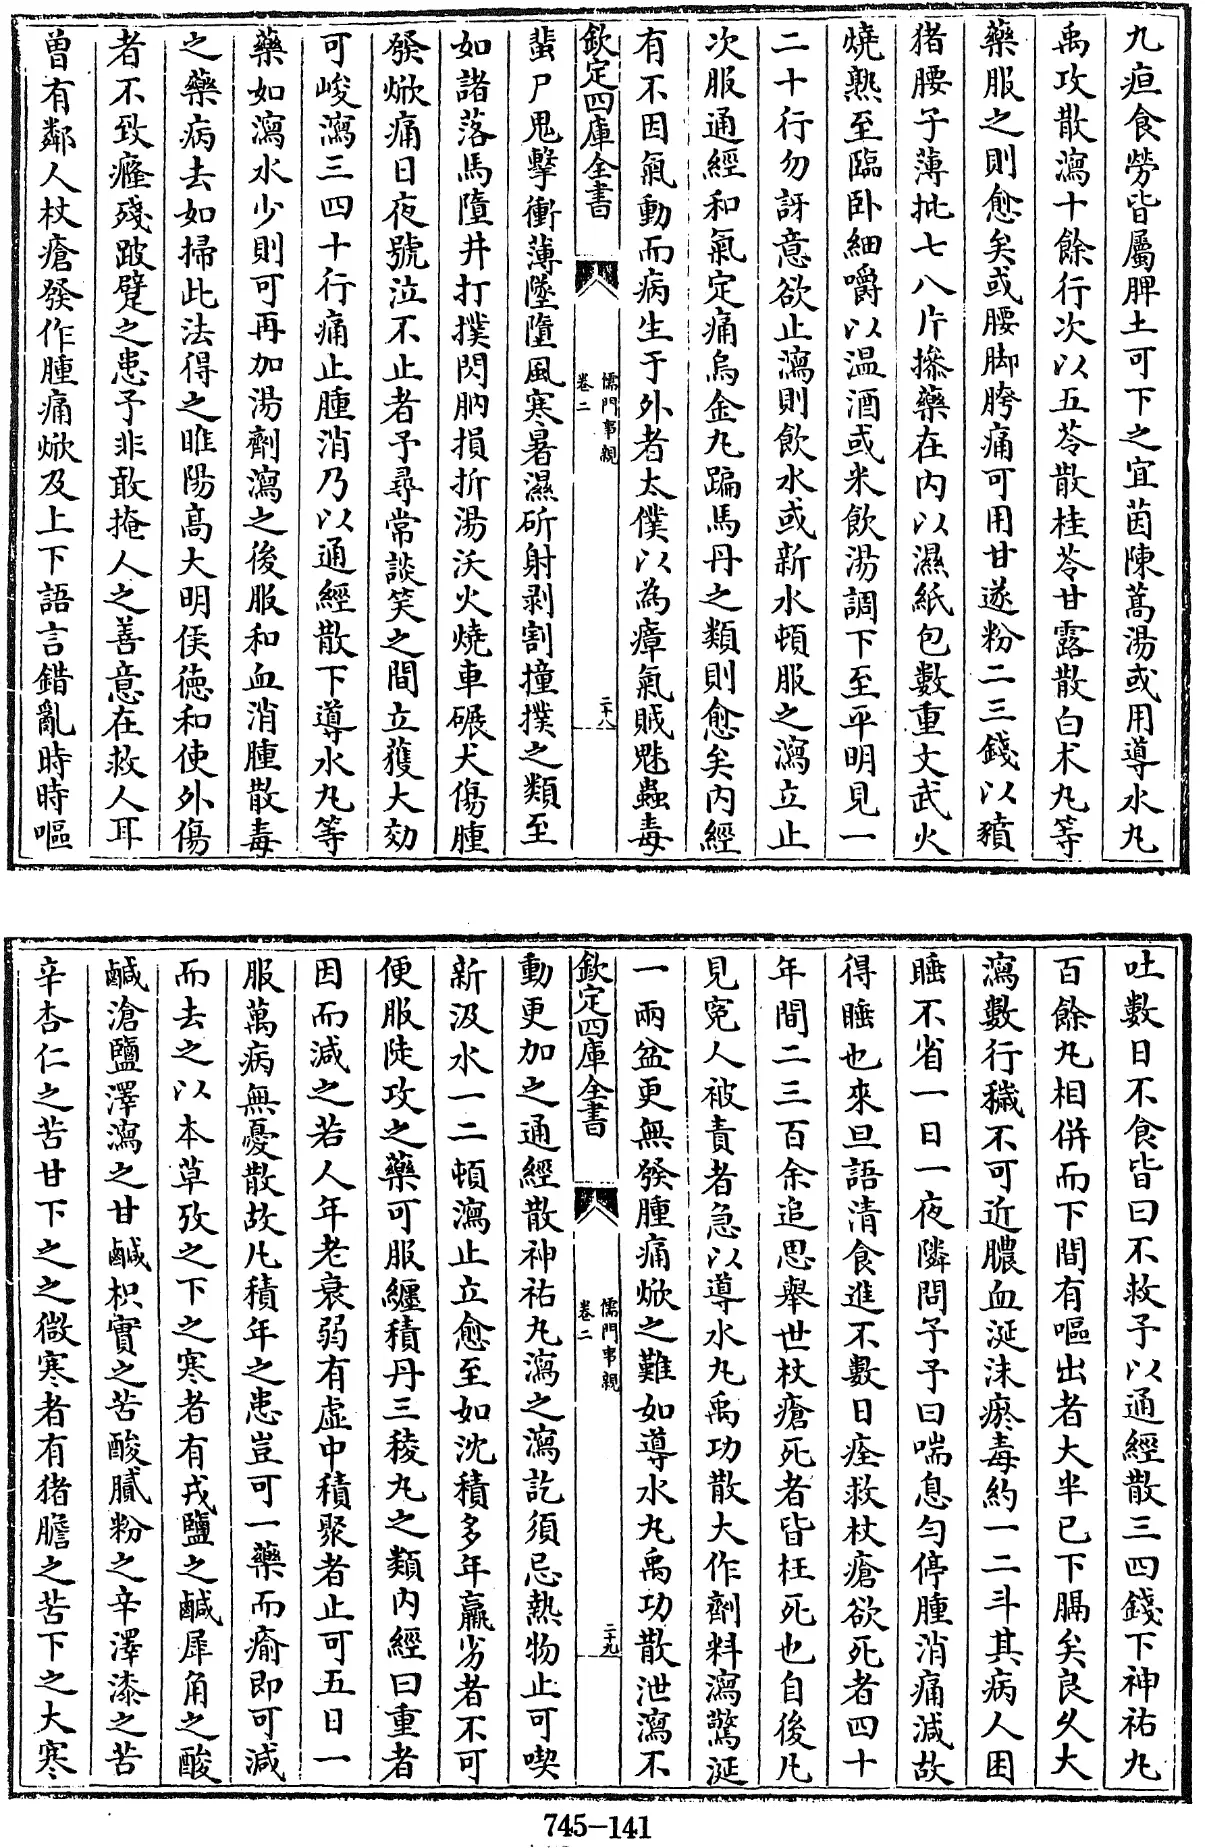 九疸食勞皆屬脾土可下之宜茵陳蒿湯或用導水丸
禹攻散瀉十餘行次以五苓散桂苓甘露散白术丸等
藥服之則愈矣或腰脚胯痛可用甘遂粉二三錢以豶
猪腰子薄批七八片摻藥在内以濕紙包數重文武火
燒熟至臨卧細嚼以温酒或米飲湯調下至平明見一
二十行勿訝意欲止瀉則飲水或新水頓服之瀉立止
次服通經和氣定痛烏金丸蹁馬丹之類則愈矣内經
有不因氣動而病生于外者太僕以為瘴氣賊魅蟲毒
欽定四庫全書
儒門事親
卷二
二十八
蜚尸鬼擊衝薄墜墮風寒暑濕斫射剥割撞撲之類至
如諸落馬墮井打撲閃肭損折湯沃火燒車碾犬傷腫
發焮痛日夜號泣不止者予尋常談笑之間立獲大効
可峻瀉三四十行痛止腫消乃以通經散下導水丸等
藥如瀉水少則可再加湯劑瀉之後服和血消腫散毒
之藥病去如掃此法得之睢陽高大明侯德和使外傷
者不致癃殘跛躄之患予非敢掩人之善意在救人耳
曽有鄰人杖瘡發作腫痛焮及上下語言錯亂時時嘔
吐數日不食皆曰不救予以通經散三四錢下神祐丸
百餘丸相併而下間有嘔出者大半已下膈矣良久大
瀉數行穢不可近膿血涎沫瘀毒約一二斗其病人困
睡不省一日一夜隣問予予曰喘息匀停腫消痛减故
得睡也來旦語清食進不數日痊救杖瘡欲死者四十
年間二三百余追思舉世杖瘡死者皆枉死也自後凡
見寃人被責者急以導水丸禹功散大作劑料瀉驚涎
一兩盆更無發腫痛焮之難如導水丸禹功散泄瀉不
欽定四庫全書
儒門事親
卷二
二十九
動更加之通經散神祐丸瀉之瀉訖須忌熱物止可喫
新汲水一二頓瀉止立愈至如沈積多年羸劣者不可
便服陡攻之藥可服纒積丹三稜丸之類内經曰重者
因而減之若人年老衰弱有虚中積聚者止可五日一
服萬病無憂散故凡積年之患豈可一藥而瘉即可減
而去之以本草攷之下之寒者有戎鹽之鹹犀角之酸
鹹滄鹽澤瀉之甘鹹枳實之苦酸膩粉之辛澤漆之苦
辛杏仁之苦甘下之之微寒者有猪膽之苦下之大寒
745-141